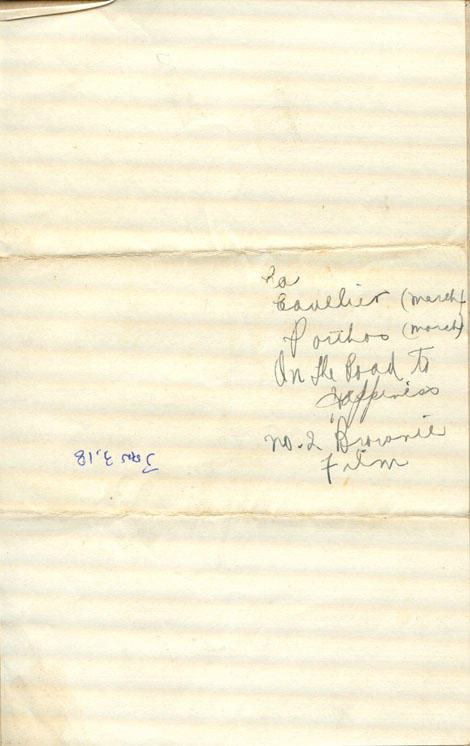 La
Cavelier (march)
Porthos (march)
On the Road to
Happiness
No. 2 Brownie
Film
Jan 3.18